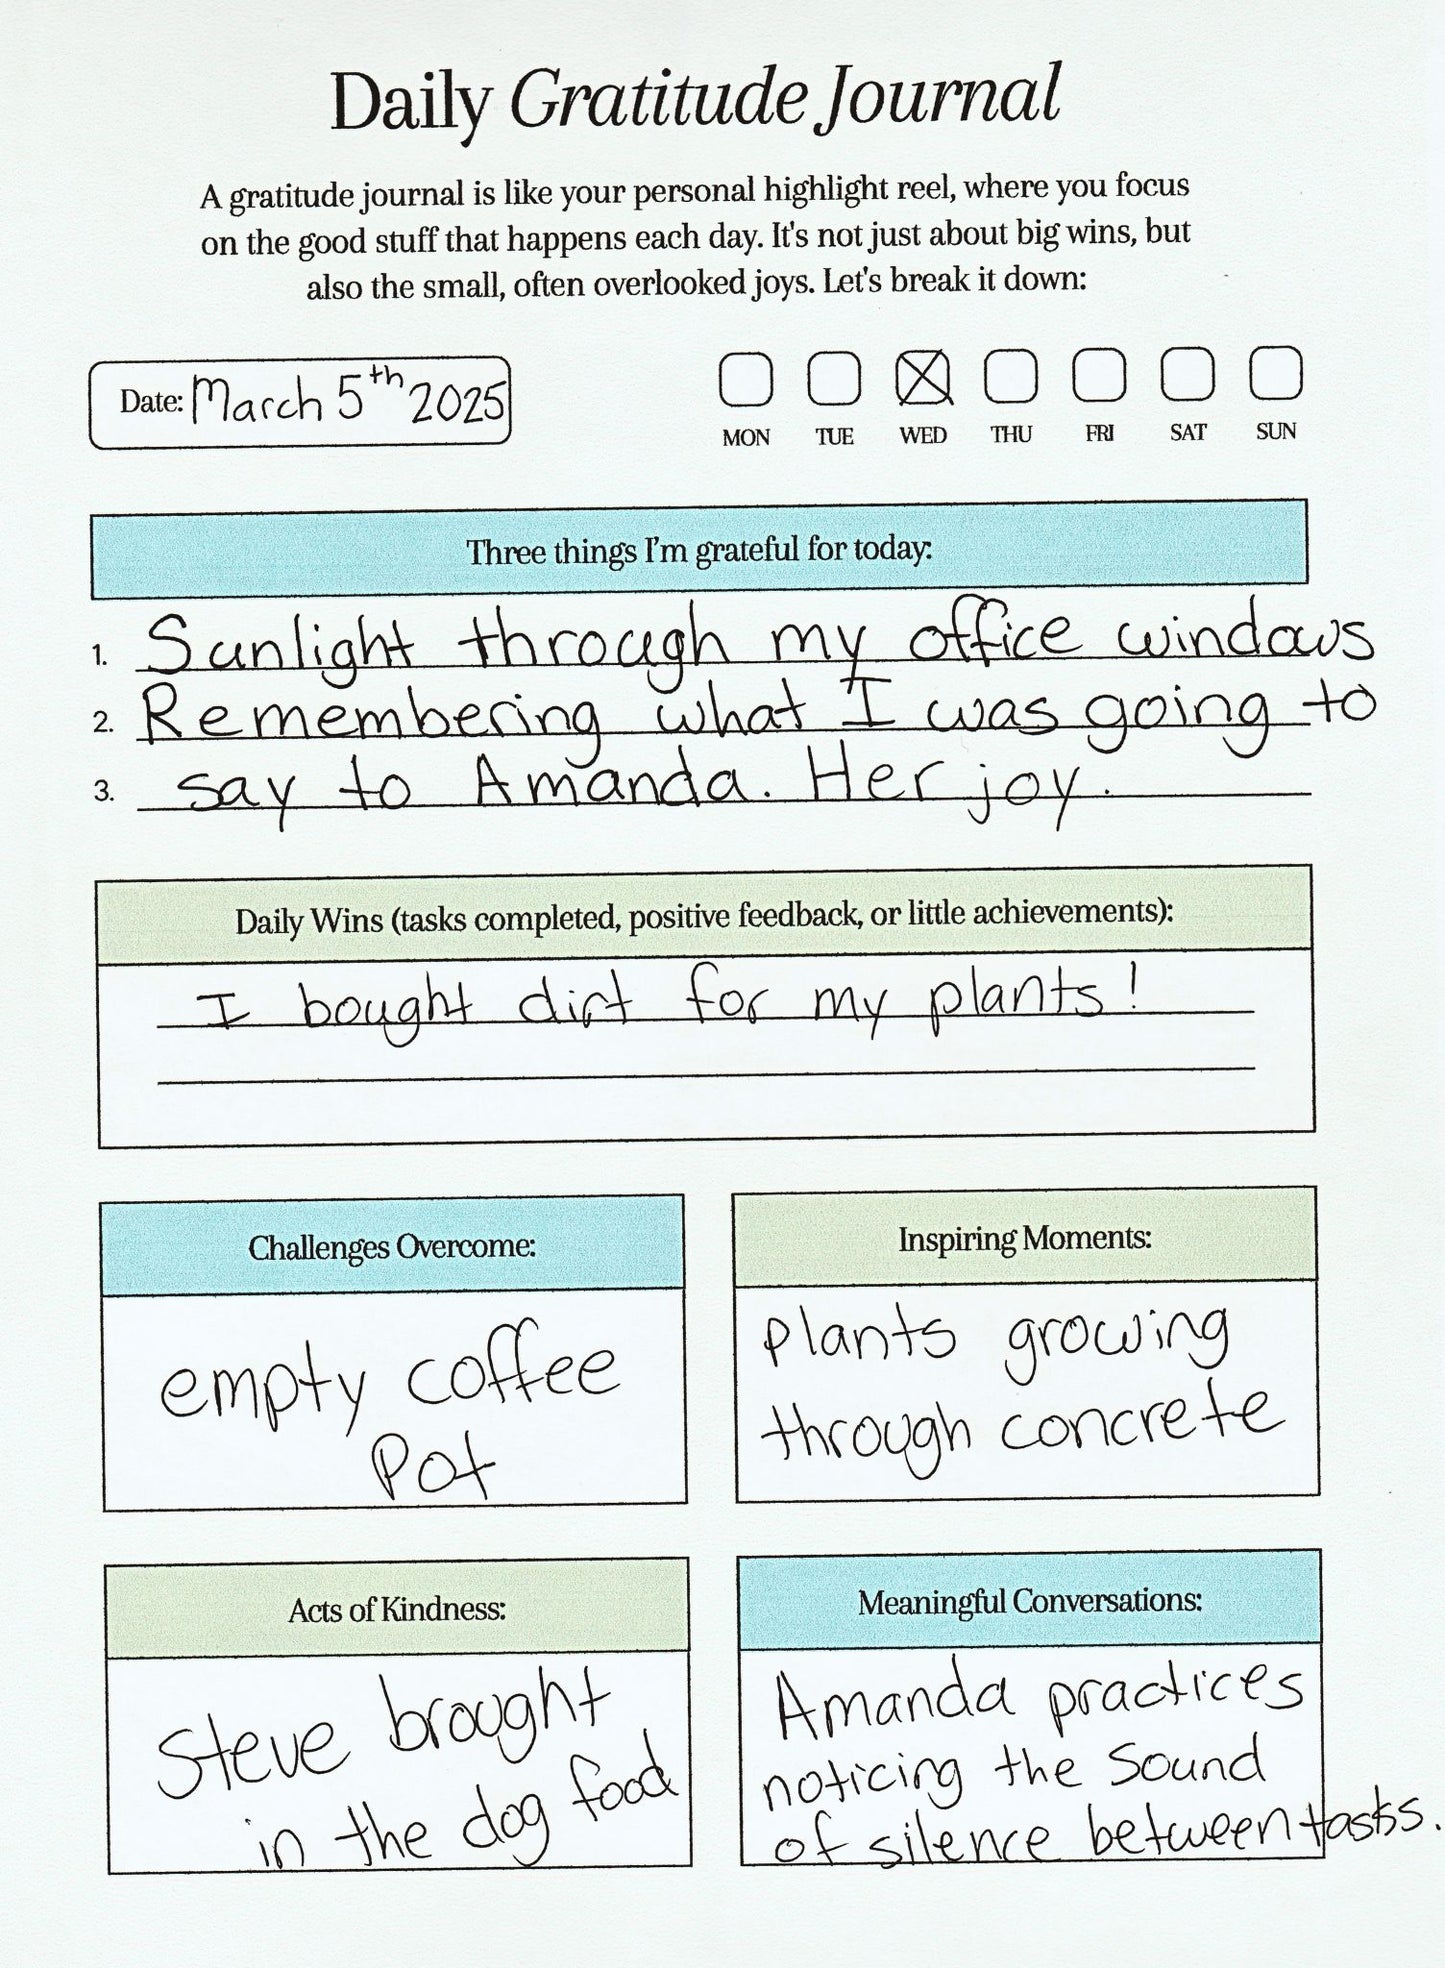 Daily Gratitude Journal
A gratitude journal is like your personal highlight reel, where you focus
on the good stuff that happens each day. It's not just about big wins, but
also the small, often overlooked joys. Let's break it down:
Date: March 5th 2025
MON TUE WED THU FRI SAT SUN
Three things I'm grateful for today:
1. Sunlight through my office windows
2. Remembering what I was going to
3. say to Amanda. Her joy.
Daily Wins (tasks completed, positive feedback, or little achievements):
I bought dirt for my plants!
Challenges Overcome:
empty coffee
Pot
Inspiring Moments:
plants growing
through concrete
Acts of Kindness:
Steve brought
in the dog food
Meaningful Conversations:
Amanda practices
noticing the Sound
of silence between tasks.